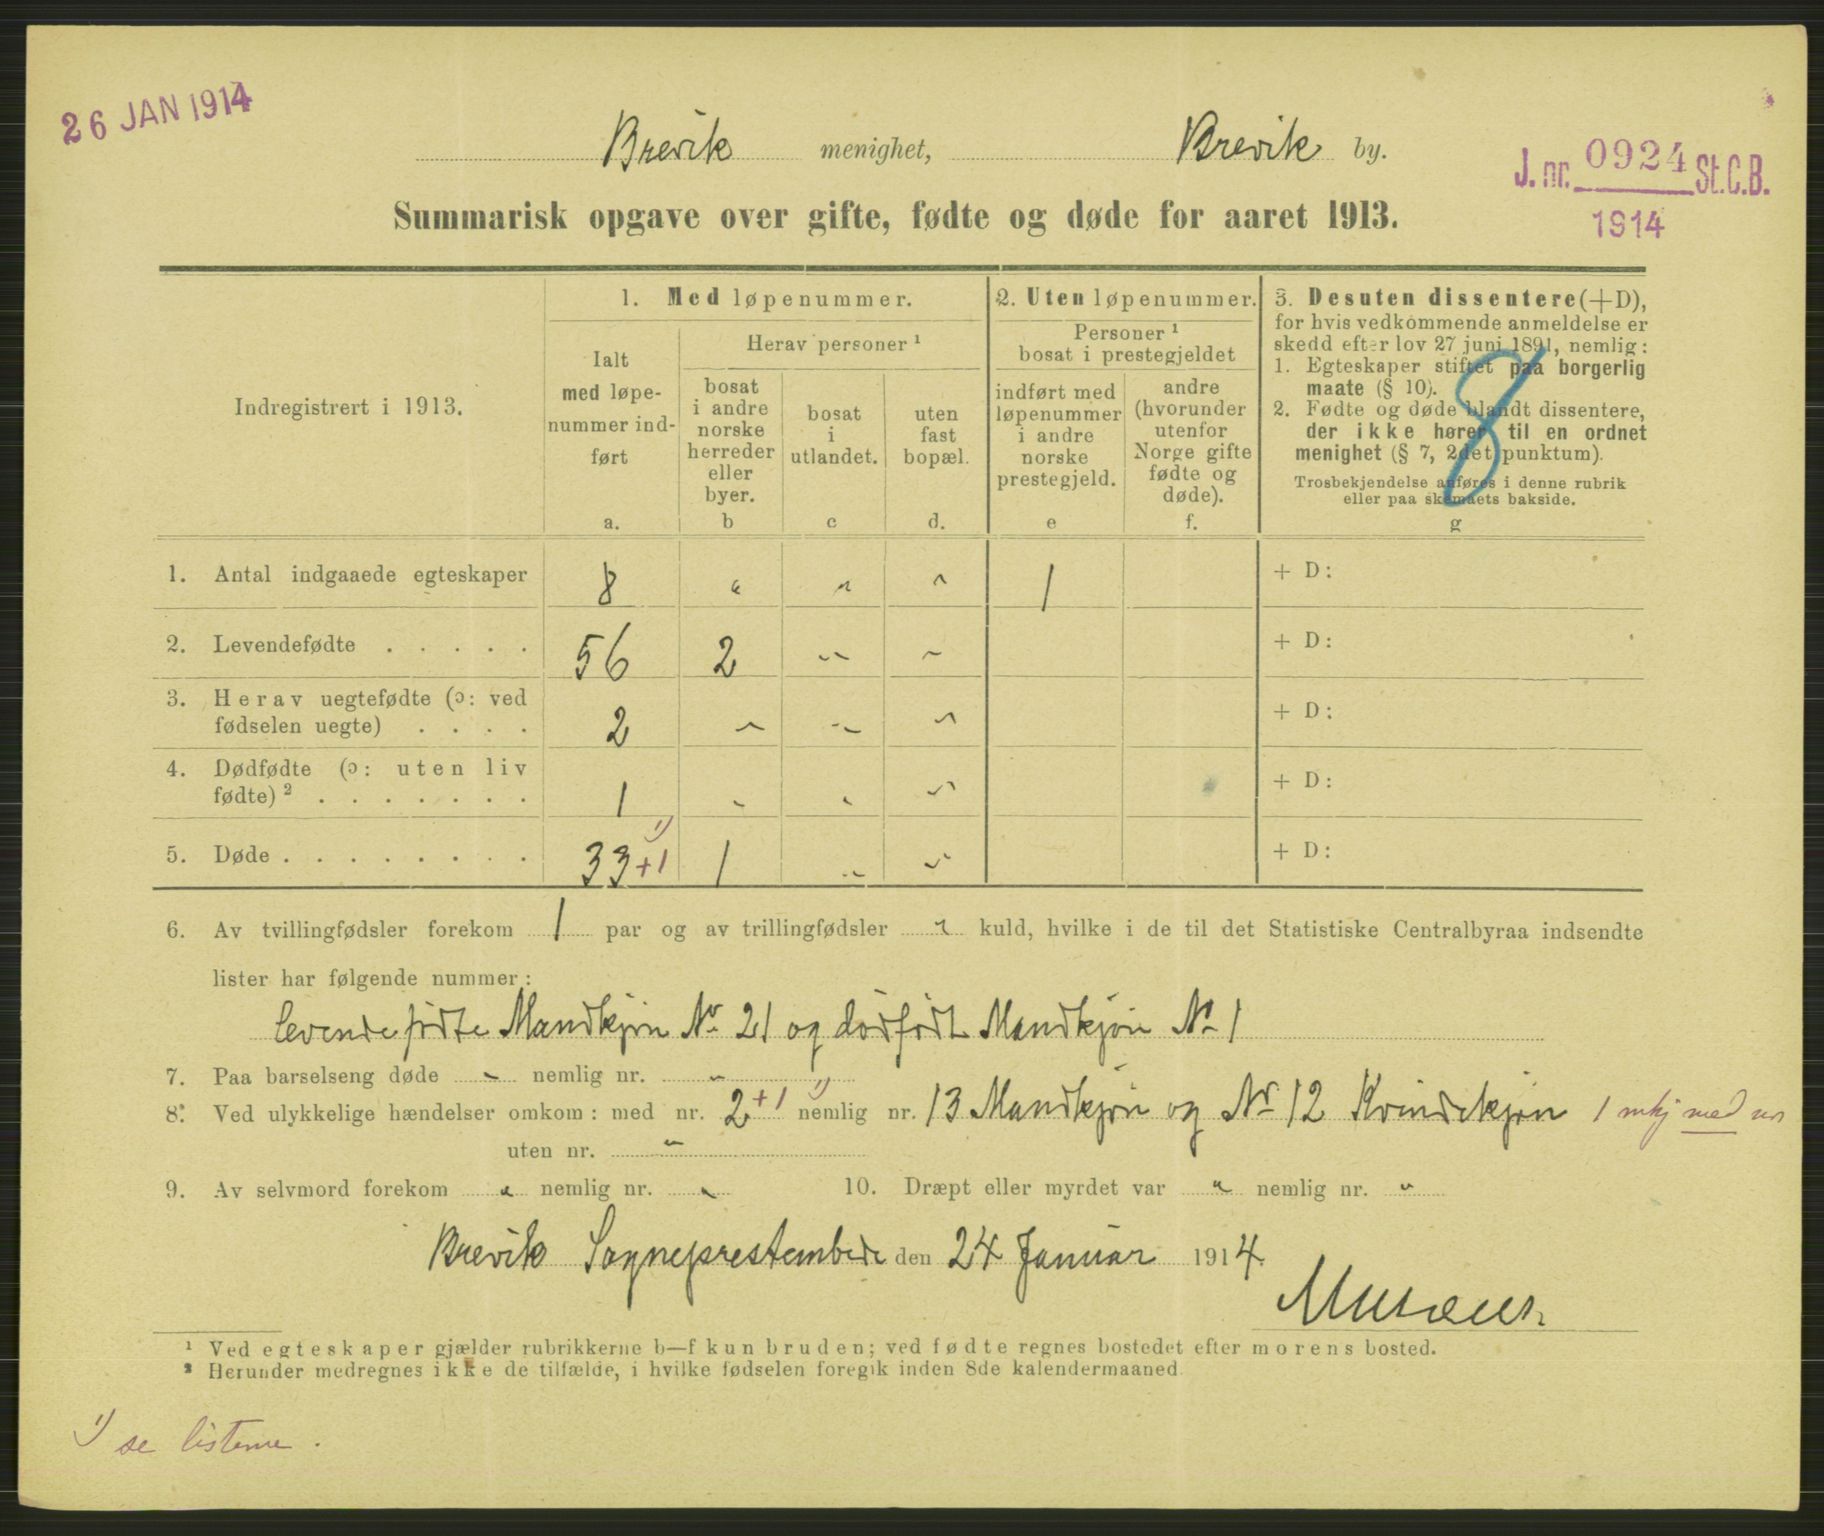 26 JAN 1914
Brevik menighet, Brevik by.
J. nr. 0924 St.C.B.
1914
Summarisk opgave over gifte, fødte og døde for aaret 1913.
Indregistrert i 1913.
1. Med løpenummer.
Ialt
med løpe-
nummer ind-
ført
a.
Herav personer ¹
bosat
i andre
norske
herreder
eller
byer.
b
bosat
i
utlandet.
c
uten
fast
bopæl.
d.
2. Uten løpenummer.
Personer ¹
bosat i prestegjeldet
indført med
løpenummer
i andre
norske
prestegjeld.
e
andre
(hvorunder
utenfor
Norge gifte
fødte og
døde).
f.
3. Desuten dissentere (+D),
for hvis vedkommende anmeldelse er
skedd efter lov 27 juni 1891, nemlig:
1. Egteskaper stiftet paa borgerlig
maate (§ 10).
2. Fødte og døde blandt dissentere,
der ikke hører til en ordnet
menighet (§ 7, 2det punktum).
Trosbekjendelse anføres i denne rubrik
eller paa skemaets bakside.
g
8
1. Antal indgaaede egteskaper 8 " " " 1 + D:
2. Levendefødte . . . . . 56 2 " " + D:
3. Herav uegtefødte (ɔ: ved
fødselen uegte) . . . . 2 " " " + D:
4. Dødfødte (ɔ: uten liv
fødte) ² . . . . . . . 1 " " " + D:
5. Døde . . . . . . . . 33 +1 ¹) 1 " " + D:
6. Av tvillingfødsler forekom 1 par og av trillingfødsler " kuld, hvilke i de til det Statistiske Centralbyraa indsendte
lister har følgende nummer:
levendefødte Mandkjøn No 21 og dødfødt Mandkjøn No 1
7. Paa barselseng døde " nemlig nr. "
8. Ved ulykkelige hændelser omkom: med nr. 2 +1 ¹) nemlig nr. 13 Mandkjøn og Nr 12 Kvindekjøn 1 mkj med nr
uten nr. "
9. Av selvmord forekom " nemlig nr. " 10. Dræpt eller myrdet var " nemlig nr. "
Brevik Sogneprestembede den 24 Januar 1914.
¹ Ved egteskaper gjælder rubrikkerne b—f kun bruden; ved fødte regnes bostedet efter morens bosted.
² Herunder medregnes ikke de tilfælde, i hvilke fødselen foregik inden 8de kalendermaaned.
¹) se listerne.